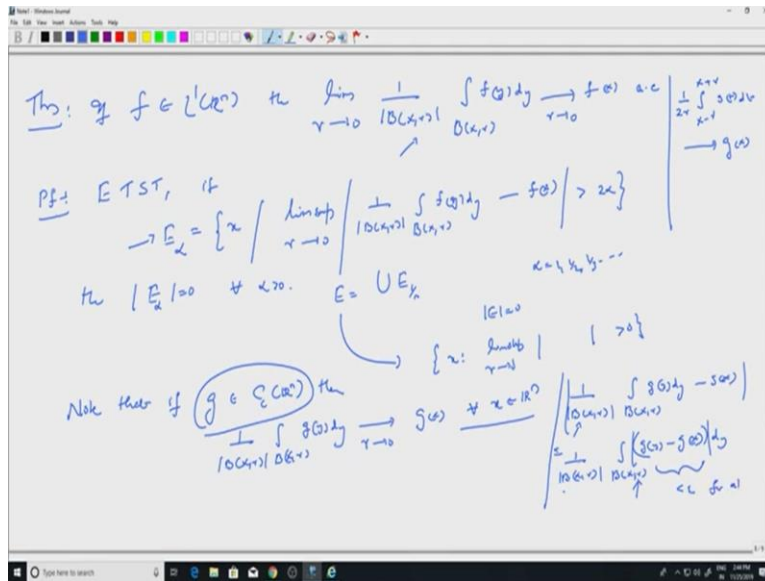 Note1 - Windows Journal
File Edit View Insert Actions Tools Help
Thm: If f ∈ L¹(ℝⁿ) then lim_{r→0} 1/|B(x,r)| ∫_{B(x,r)} f(y) dy ⟶_{r→0} f(x) a.e
1/2r ∫_{x-r}^{x+r} g(t) dt
⟶ g(x)
Pf: ETST, if
→ E_α = { x | limsup_{r→0} | 1/|B(x,r)| ∫_{B(x,r)} f(y) dy − f(x) | > 2α }
α = 1, 1/2, 1/3 ...
then |E_α| = 0 ∀ α>0. E = ∪ E_{1/n}
|E| = 0
{ x : limsup_{r→0} | | > 0 }
Note that if g ∈ C_c(ℝⁿ) then
1/|B(x,r)| ∫_{B(x,r)} g(y) dy ⟶_{r→0} g(x) ∀ x ∈ ℝⁿ
| 1/|B(x,r)| ∫_{B(x,r)} g(y) dy − g(x) |
≤ 1/|B(x,r)| ∫_{B(x,r)} |g(y) − g(x)| dy
< ε for all
Type here to search
ENG 2:44 PM
IN 11/25/2019